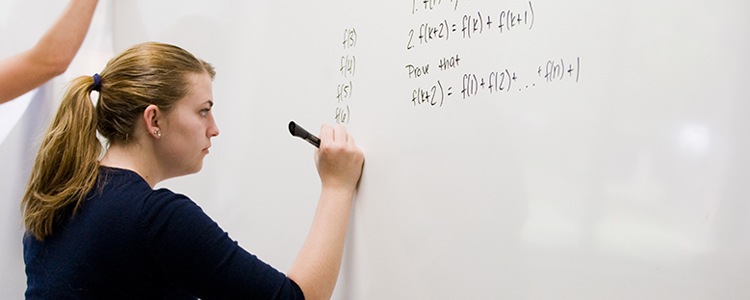 f(3)
f(4)
f(5)
f(6)
1. f(
2. f(k+2) = f(k) + f(k+1)
Prove that
f(k+2) = f(1) + f(2) + ... + f(n) + 1